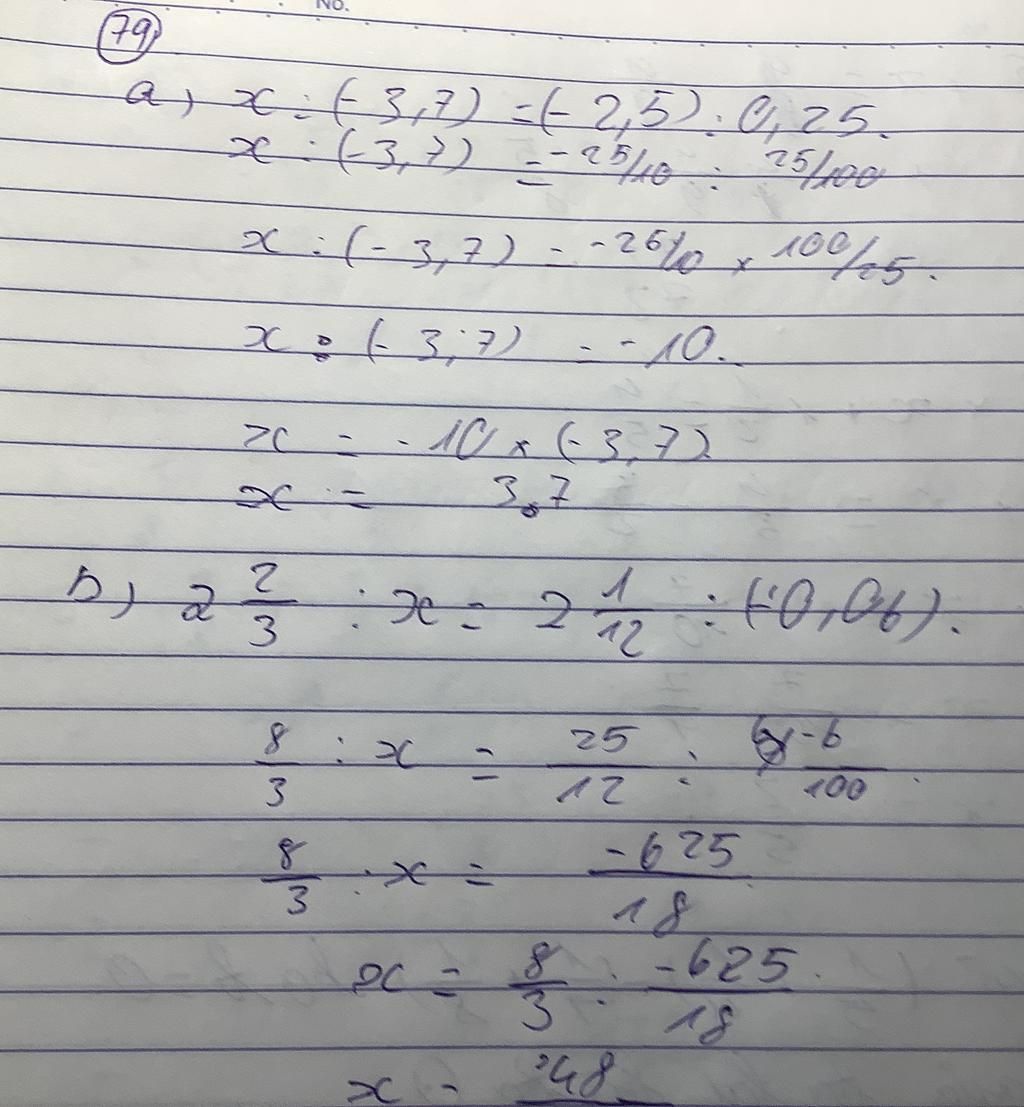 No.
79
a) x : (-3,7) = (-2,5) : 0,25.
x : (-3,7) = -25/10 : 25/100
x : (-3,7) = -25/10 × 100/25.
x : (-3,7) = -10.
x = -10 × (-3,7)
x = 3,7
b) 2 2/3 : x = 2 1/12 : (-0,06).
8/3 : x = 25/12 : -6/100
8/3 : x = -625/18
x = 8/3 : -625/18
x = -48